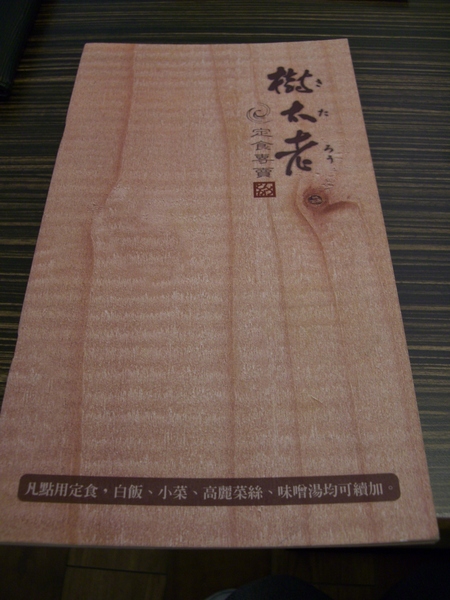 樹太老
きたろう
定食專賣
凡點用定食，白飯、小菜、高麗菜絲、味噌湯均可續加。